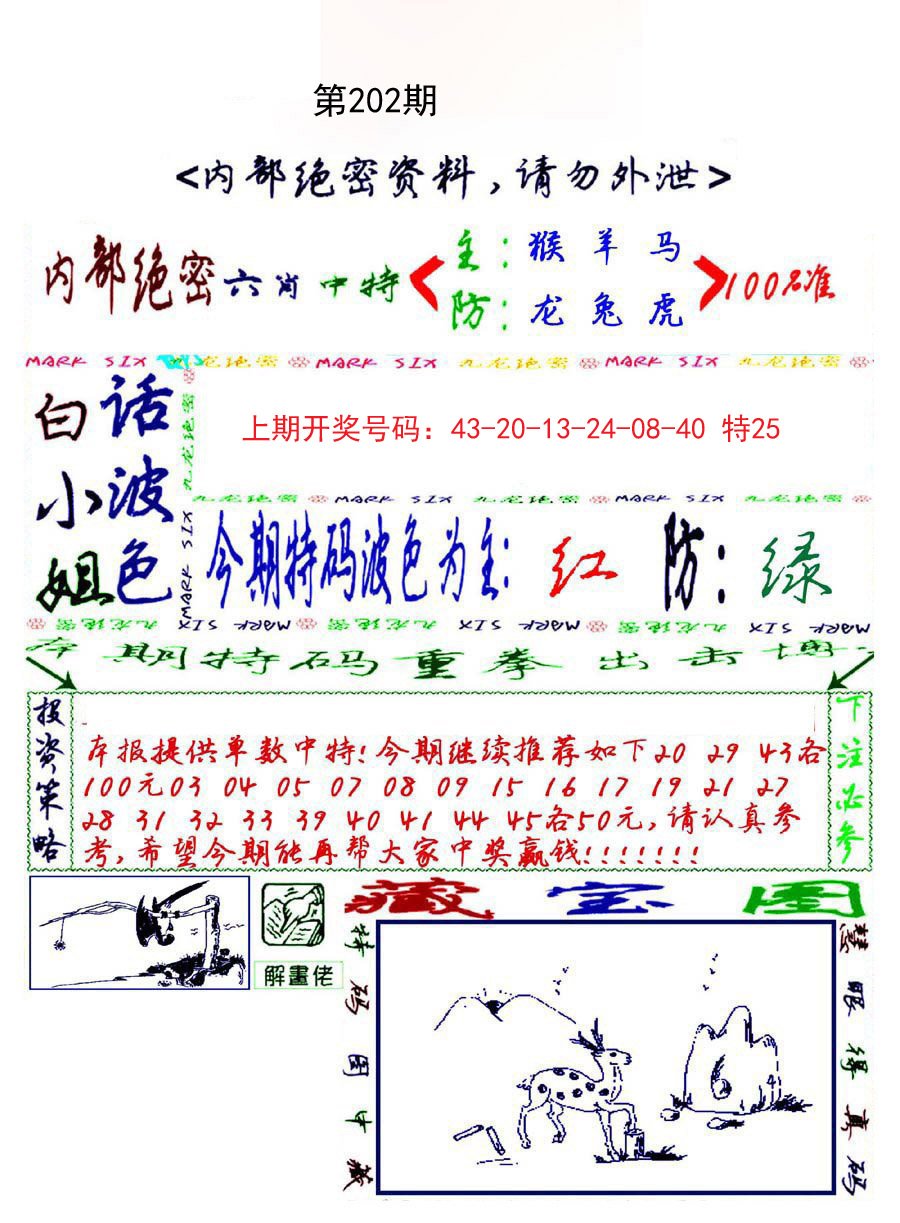 第202期
<内部绝密资料,请勿外泄>
内部绝密六肖中特
主:猴 羊 马
防:龙 兔 虎
100%准
MARK SIX 九龙绝密 MARK SIX 九龙绝密 MARK SIX 九龙绝密
白小姐
话波色
九龙绝密 MARK SIX
上期开奖号码：43-20-13-24-08-40 特25
九龙绝密 MARK SIX 九龙绝密 MARK SIX 九龙绝密
今期特码波色为主:红 防:绿
九龙绝密 MARK SIX 九龙绝密 MARK SIX 九龙绝密 MARK SIX
本期特码重拳出击博
投资策略
本报提供单数中特!今期继续推荐如下20 29 43各
100元03 04 05 07 08 09 15 16 17 19 21 27
28 31 32 33 39 40 41 44 45各50元,请认真参
考,希望今期能再帮大家中奖赢钱!!!!!!!
下注必参
解畫佬
藏宝图
特码图中藏
慧眼得真码